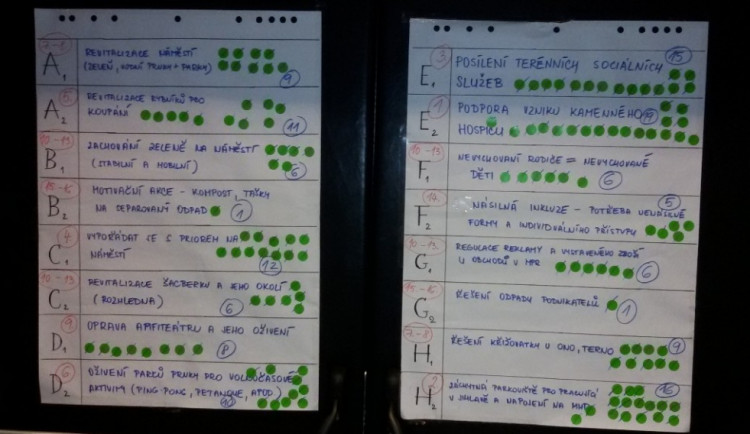 7-8
A1
REVITALIZACE NÁMĚSTÍ
(ZELEŇ, VODNÍ PRVKY + PARKY)
9
5
A2
REVITALIZACE RYBNÍKŮ PRO
KOUPÁNÍ
11
10-13
B1
ZACHOVÁNÍ ZELENĚ NA NÁMĚSTÍ
(STABILNÍ A MOBILNÍ)
6
15-16
B2
MOTIVAČNÍ AKCE - KOMPOST, TAŠKY
NA SEPAROVANÝ ODPAD
1
4
C1
VYPOŘÁDAT SE S PRIOREM NA
NÁMĚSTÍ
12
10-13
C2
REVITALIZACE ŠACBERKU A JEHO OKOLÍ
(ROZHLEDNA)
6
9
D1
OPRAVA AMFITEÁTRU A JEHO OŽIVENÍ
8
6
D2
OŽIVENÍ PARKŮ PRVKY PRO VOLNOČASOVÉ
AKTIVITY (PING-PONG, PETANQUE, APOD.)
10
3
E1
POSÍLENÍ TERÉNNÍCH SOCIÁLNÍCH
SLUŽEB
15
1
E2
PODPORA VZNIKU KAMENNÉHO
HOSPICU
10-13
F1
NEVYCHOVANÍ RODIČE = NEVYCHOVANÉ
DĚTI
6
14
F2
NÁSILNÁ INKLUZE - POTŘEBA NENÁSILNÉ
FORMY A INDIVIDUÁLNÍHO PŘÍSTUPU
5
10-13
G1
REGULACE REKLAMY A VYSTAVENÉHO ZBOŽÍ
U OBCHODŮ V MPR
6
15-16
G2
ŘEŠENÍ ODPADY PODNIKATELŮ
1
7-8
H1
ŘEŠENÍ KŘIŽOVATKY U ONO, TERNO
9
2
H2
ZÁCHYTNÁ PARKOVIŠTĚ PRO PRACUJÍCÍ
V JIHLAVĚ A NAPOJENÍ NA MHD
16